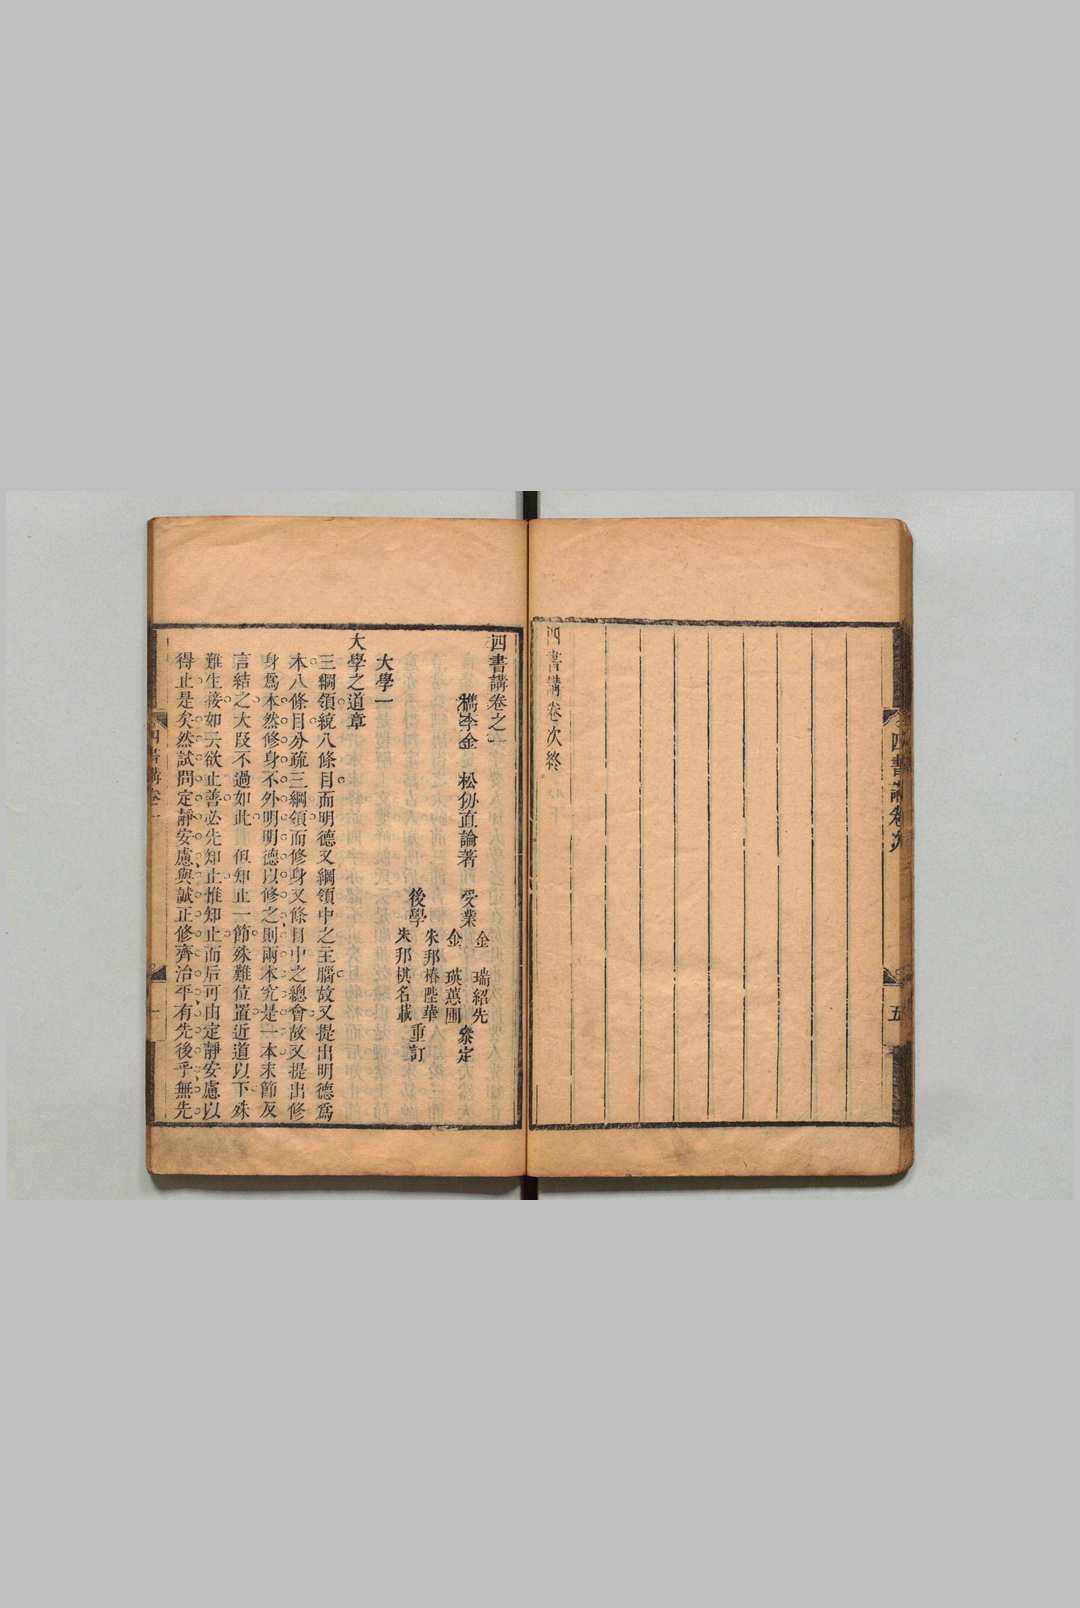 四書講卷次
五
四書講卷次終
四書講卷之一
檇李金　松仞直論著　受業
金　瑞紹先
金　瑛蕙圃
參定
後學
朱邦椿陛華
朱邦棋名載
重訂
大學一
大學之道章
三綱領統八條目而明德又綱領中之主腦故又提出明德爲
本八條目分疏三綱領而修身又條目中之總會故又提出修
身爲本然修身不外明明德以修之則兩本究是一本末節反
言結之大段不過如此但知止一節殊難位置近道以下殊
難生接如云欲止善必先知止惟知止而后可由定靜安慮以
得止是矣然試問定靜安慮與誠正修齊治平有先後乎無先
四書講卷一
一